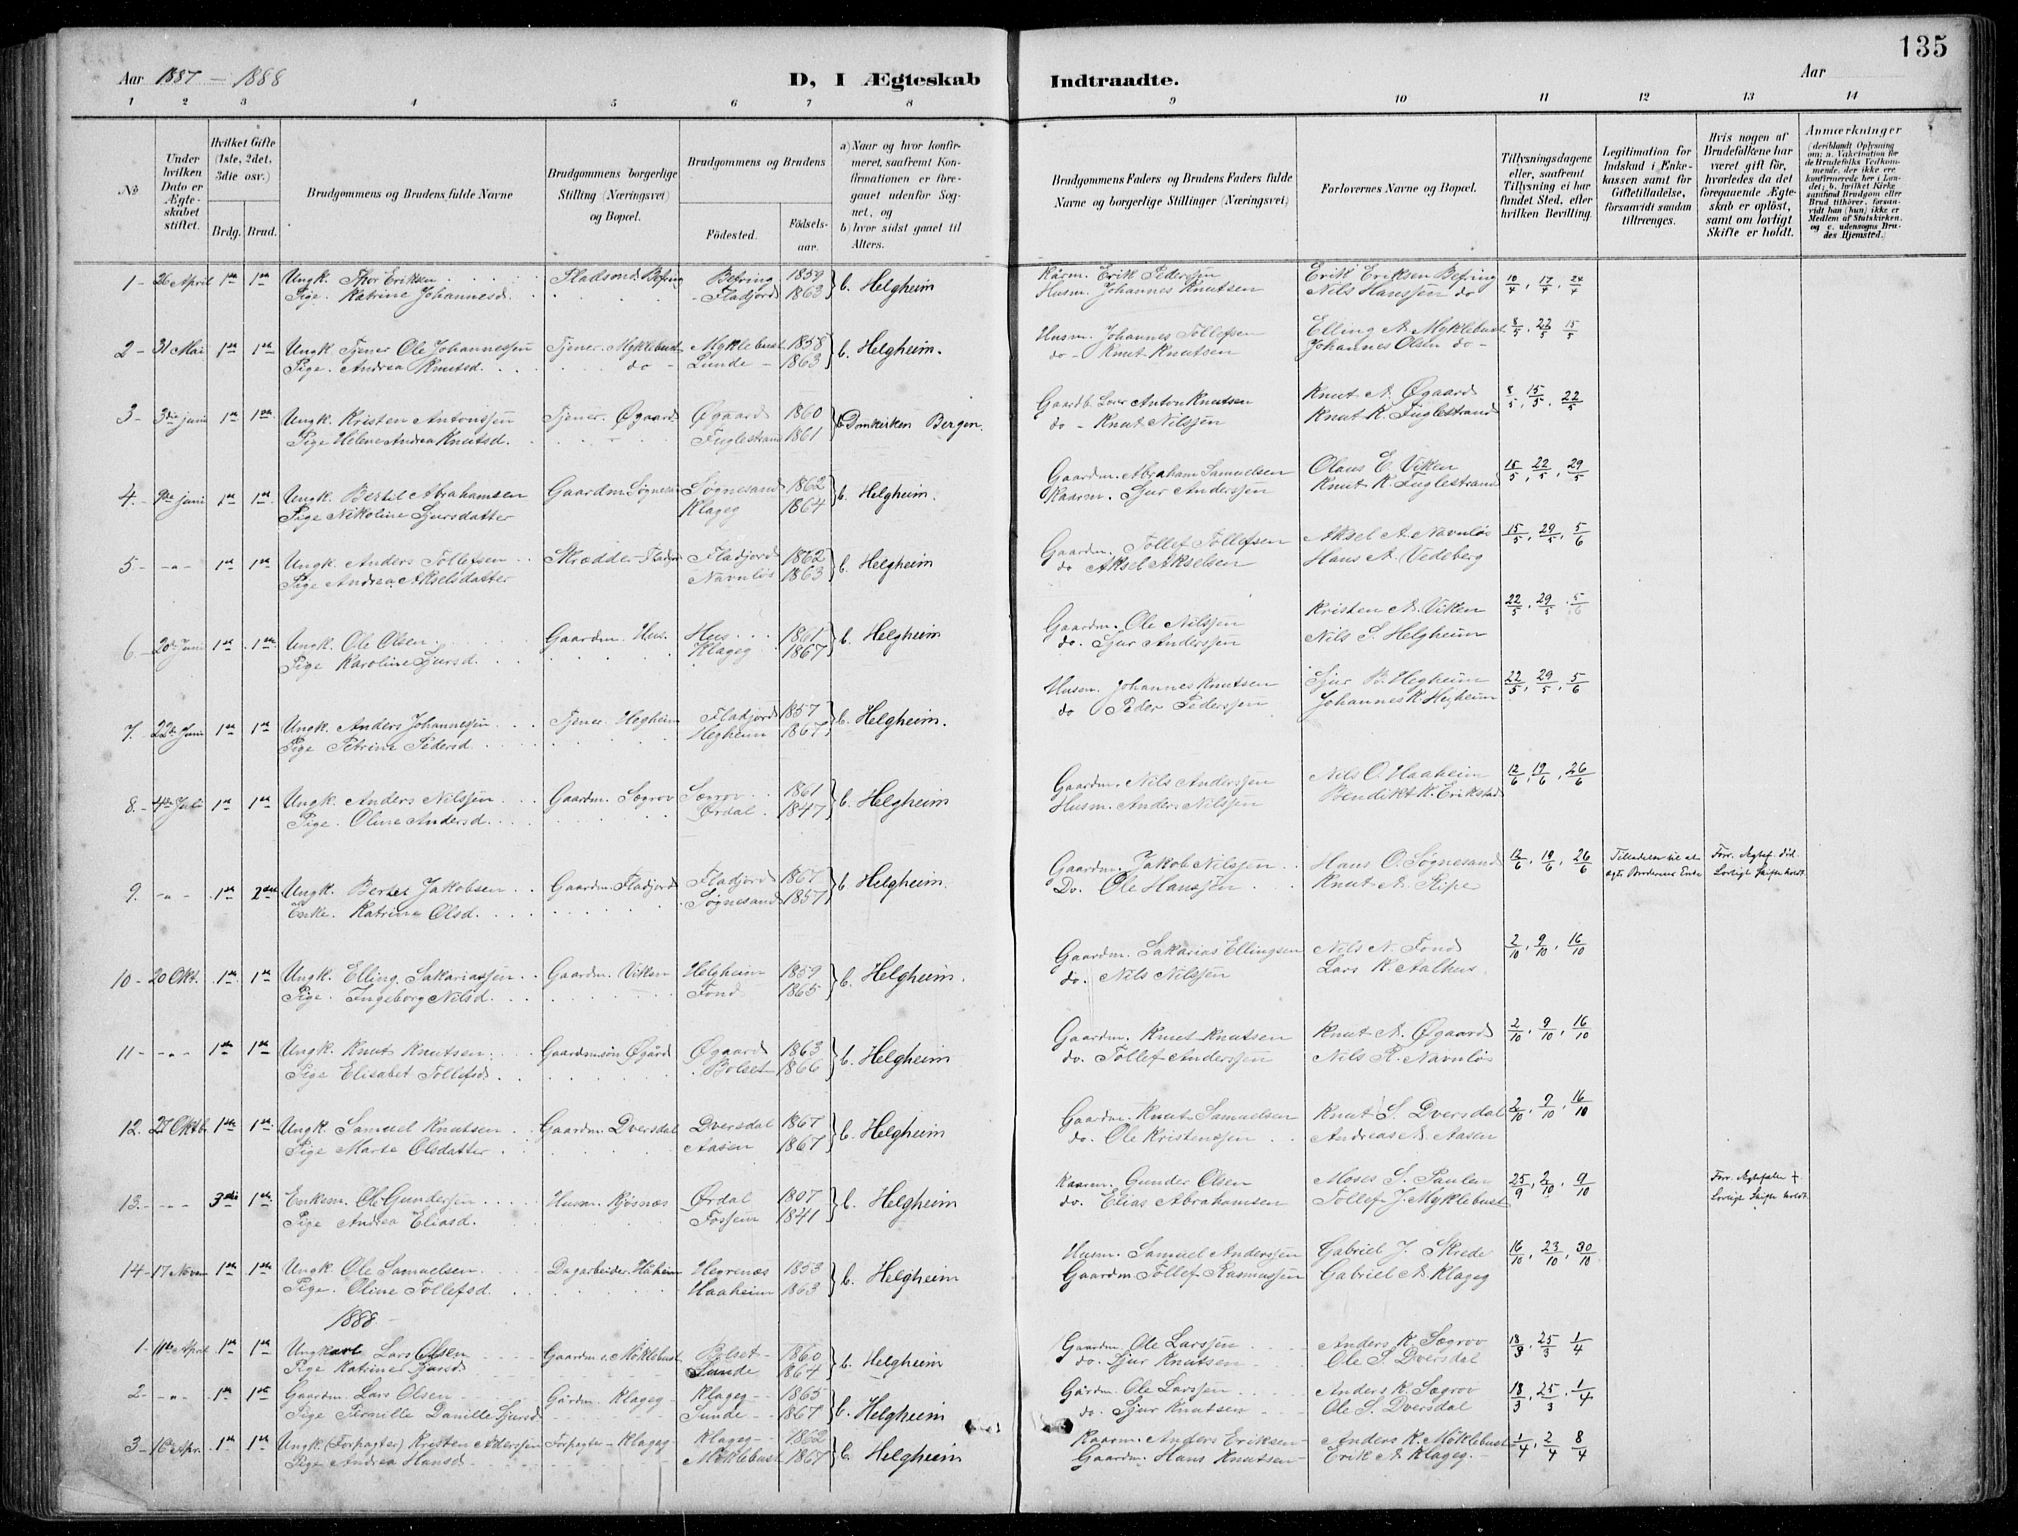 135
Aar 1887 — 1888
D, I Ægteskab
Indtraadte.
Aar
1 2 3 4 5 6 7 8 9 10 11 12 13 14
No
Under hvilken Dato er Ægteskabet stiftet.
Hvilket Gifte (1ste, 2det, 3die osv.)
Brdg. Brud.
Brudgommens og Brudens fulde Navne
Brudgommens borgerlige Stilling (Næringsvei) og Bopæl.
Brudgommens og Brudens
Fødested.
Fødselsaar.
a) Naar og hvor konfirmeret, saafremt Konfirmationen er foregaaet udenfor Sognet, og
b) hvor sidst gaaet til Alters.
Brudgommens Faders og Brudens Faders fulde Navne og borgerlige Stillinger (Næringsvei)
Forlovernes Navne og Bopæl.
Tillysningsdagene eller, saafremt Tillysning ei har fundet Sted, efter hvilken Bevilling.
Legitimation for Indskud i Enkekassen samt for Giftetilladelse, forsaavidt saadan tiltrænges.
Hvis nogen af Brudefolkene har været gift før, hvorledes da det foregaaende Ægteskab er opløst, samt om lovligt Skifte er holdt.
Anmærkninger (deriblandt Oplysning om: a. Vakcination for de Brudefolks Vedkommende, der ikke ere konfirmerede her i Landet; b. hvilket Kirkesamfund Brudgom eller Brud tilhører, forsaavidt han (hun) ikke er Medlem af Statskirken, og c. udensogns Brudes Hjemsted.)
1 - 26 April 1ste 1ste Ungk. Thor Eriksen Befring 1859 b. Helgheim Kårm. Erik Pedersen Erik Eriksen Befring 10/4, 17/4, 24/4
Pige. Katrine Johannesd. Fladjord 1863 Husm. Johannes Knutsen Nils Hanssen do
2 - 31 Mai 1ste 1ste Ungk. Tjener Ole Johannessen Tjener. Myklebust Myklebust 1858 b. Helgheim. Husm. Johannes Tollefsen Elling A. Myklebust 8/5, 22/5 15/5
Pige. Andrea Knutsd. do - Lunde - 1863 do - Knut Knutsen Johannes Olsen do -
3 - 3die Juni 1ste 1ste Ungk. Kristen Antonssen Tjener. Øgaard Øgaard 1860 b. Domkirken Bergen. Gaardb. Anton Knutsen Knut A. Øgaard 8/5, 15/5, 22/5
Pige Helene Andrea Knutsd. Fuglestrand 1861 do - Knut Nilssen Knut K. Fuglestrand
4. - 9de Juni 1ste 1ste Ungk. Bertil Abrahamsen Gaardm. Søgnesand Søgnesand 1862 b. Helgheim. Gaardm. Abraham Samuelsen Olaus E. Viken 15/5, 22/5, 29/5
Pige Nikoline Sjursdatter Klageg 1864 Kaarm. Sjur Anderssen Knut K. Fuglestrand
5 - - " - 1ste 1ste Ungk. Anders Tollefsen Skrædder - Fladjord Fladjord 1862 b. Helgheim Gaardm. Tollef Tollefsen Aksel A. Navnløs 15/5, 29/5, 5/6
Pige Andrea Akselsdatter Navnløs 1863 do Aksel Akselsen Hans A. Vedeberg
6 - 20de Juni 1ste 1ste Ungk. Ole Olsen Gaardm. Hus. Hus 1861 b. Helgheim Gaardm. Ole Nilssen Kristen A. Viken 22/5, 29/5, 5/6
Pige Karoline Sjursd. Klageg 1867 do. Sjur Anderssen Nils S. Helgheim
7. - 22de Juni 1ste 1ste Ungk. Anders Johannessen Tjener. Hegheim Fladjord 1857 b. Helgheim. Husm. Johannes Knutsen Sjur B. Hegheim 22/5, 29/5, 5/6
Pige Petrine Pedersd. Hegheim 1867 do Peder Pederssen Johannes K. Hegheim
8. - 4de Juli 1ste 1ste Ungk. Anders Nilssen Gaardm. Sægrov Sægrov 1861 b. Helgheim Gaardm. Nils Anderssen Nils O. Haaheim 12/6, 19/6, 26/6
Pige. Oline Andersd. Ørdal 1847 Husm. Anders Nilssen Bendikt K. Erikstad
9. - " - 1ste 2den Ungk. Bertel Jakobsen Gaardm. Fladjord Fladjord 1867 b Helgheim. Gaardm. Jakob Nilssen Hans O. Søgnesand 12/6, 19/6, 26/6 Tilladelse til at ægte Broderens Enke Forr. Ægtef. død. Lovligt Skifte holdt.
Enke. Katrina Olsd. Søgnesand 1857 Do. Ole Hanssen Knut A. Kipe
10 - 20 Okt. 1ste 1ste Ungk. Elling Sakariassen Gaardm. Viken Helgheim 1859 b. Helgheim. Gaardm. Sakarias Ellingsen Nils N. Fond 2/10, 9/10, 16/10
Pige. Ingeborg Nilsd. Fond 1865 do. Nils Nilssen Lars K. Aalhus
11 - - " - 1ste 1ste Ungk. Knut Knutsen Gaardmsøn Øgård Øgaard 1863 b. Helgheim Gaardm. Knut Knutsen Knut A. Øgaard 2/10, 9/10, 16/10
Pige Elisabet Tollefsd. Bolset 1866 do. Tollef Anderssen Nils R. Navnløs
12. 27 Oktb. 1ste 1ste Ungk. Samuel Knutsen Gaardm. Dversdal Dversdal 1867 b. Helgheim Gaardm. Knut Samuelsen Knut S. Dversdal 2/10, 9/10, 16/10
Pige Marte Olsdatter Aasen 1867 do. Ole Kristenssen Andreas A. Aasen
13. - " - 3die 1ste Enkem. Ole Gundersen Husm. Kjøsnæs Ørdal 1807 b. Helgheim Kaarm. Gunder Olsen Moses S. Paulen 25/9, 2/10, 9/10 Forr. Ægtefælle + Lovligt Skifte holdt.
Pige Andrea Eliasd. Fosseim 1841 do. Elias Abrahamsen Tollef J. Myklebust
14 - 17 Novm 1ste 1ste Ungk. Ole Samuelsen Dagarbeider. Håheim Hegrenæs 1853 b. Helgheim Husm. Samuel Anderssen Gabriel J. Skrede 16/10, 23/10, 30/10
Pige. Oline Tollefsd. Haaheim 1863 Gaardm. Tollef Rasmussen Gabriel A. Klageg
1888.
1 - 11te April 1ste 1ste Ungkarl Lars Olsen Gaardm s. Møklebust Bolset 1860 b. Helgheim Gaardm. Ole Larssen Anders K. Sægrov 18/3, 25/3, 1/4
Pige Katrine Sjursd Sunde 1864 do. Sjur Knutsen Ole S. Dversdal
2 - - " - 1ste 1ste Gaardm. Lars Olsen Gårdm. Klageg Klageg 1865 b. Helgheim Gårdm. Ole Larssen Anders K. Sægrov 18/3, 25/3, 1/4
Pige Pernille Danille Sjursd Sunde 1867 do. Sjur Knutsen Ole S. Dversdal
3 - 16de Apr. 1ste 1ste Ungk. (Forpagter) Kristen Anderssen Forpagter - Klageg Klageg - 1862 b. Helgheim Kaarm. Anders Eriksen Anders K. Møklebust 1/4, 2/4 8/4
Pige Andrea Hansd. Møklebust 1867 Gaardm. Hans Knutsen Erik A. Klageg. -